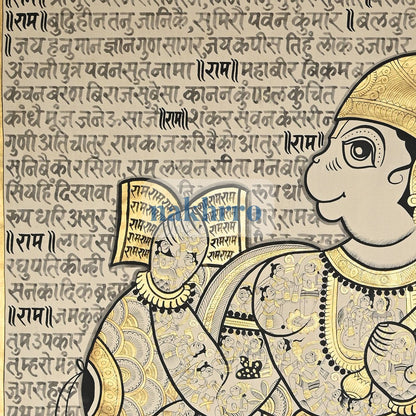 ॥राम॥ बुद्धिहीन तनु जानिके, सुमिरौं पवन कुमार। बल बु
॥जय हनुमान ज्ञान गुण सागर, जय कपीस तिहुं लोक उजाग
अंजनी पुत्र पवन सुत नामा ॥राम॥ महाबीर बिक्रम ब
कंचन बरण बिराज सुबेसा, कानन कुण्डल कुंचित
काँधे मूंज जनेउ साजे ॥राम॥ शंकर सुवन केसरीन
गुणी अति चातुर, राम काज करिबे को आतुर ॥राम॥
सुनिबे को रसिया, राम लखन सीता मन बसि
सियहिं दिखावा रूप धरि
राम राम राम राम
nakhrro
रूप धरि असुर
॥राम॥ लाय स
रघुपति कीन्ही
सनकादिक ब्रह्म
॥राम॥ जम कुबे
तुम उपकार
तुम्हरो मंत्र
जुग सहस्